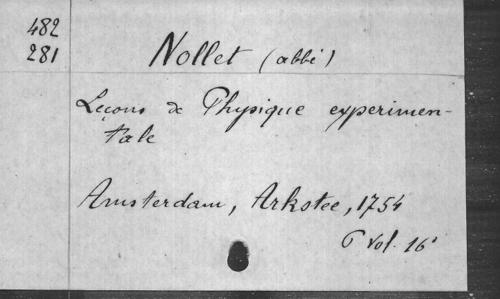 482
281
Nollet (abbé)
Leçons de Physique experimen-
tale
Amsterdam, Arkstee, 1754
6 vol. 16°